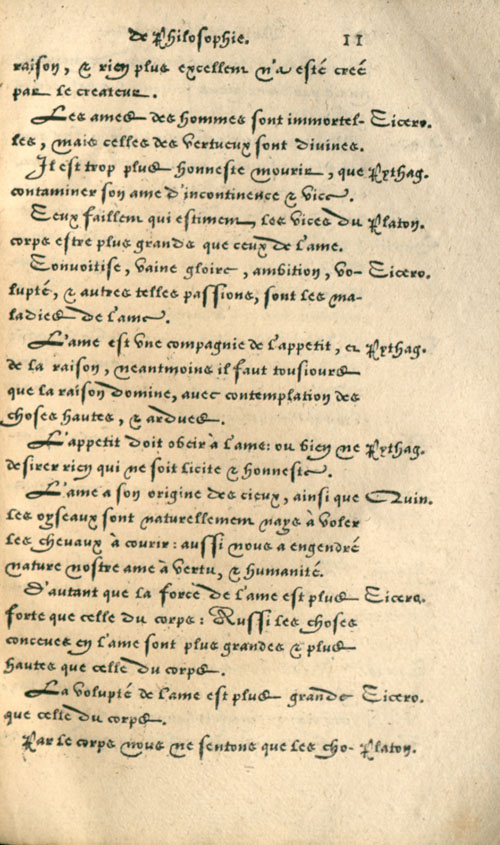 de Philosophie. 11
raison, & rien plus excellent n'a esté creé
par le createur.
Les ames des hommes sont immortel- Cicero.
les, mais celles des vertueux sont divines.
Il est trop plus honneste mourir, que Pythag.
contaminer son ame d'incontinence & vice.
Ceux faillent qui estiment, les vices du Platon.
corps estre plus grands que ceux de l'ame.
Convoitise, vaine gloire, ambition, vo- Cicero.
lupté, & autres telles passions, sont les ma-
ladies de l'ame.
L'ame est vne compagnie de l'appetit, et Pythag.
de la raison, neantmoins il faut tousiours
que la raison domine, avec contemplation des
choses hautes, & ardues.
L'appetit doit obeir à l'ame: ou bien ne Pythag.
desirer rien qui ne soit licite & honneste.
L'ame a son origine des cieux, ainsi que Quin.
les oyseaux sont naturellement nays à voler
les chevaux à courir: aussi nous a engendré
nature nostre ame à vertu, & humanité.
D'autant que la force de l'ame est plus Cicero.
forte que celle du corps: Aussi les choses
conceues en l'ame sont plus grandes & plus
hautes que celle du corps.
La volupté de l'ame est plus grande Cicero.
que celle du corps.
Par le corps nous ne sentons que les cho- Platon.